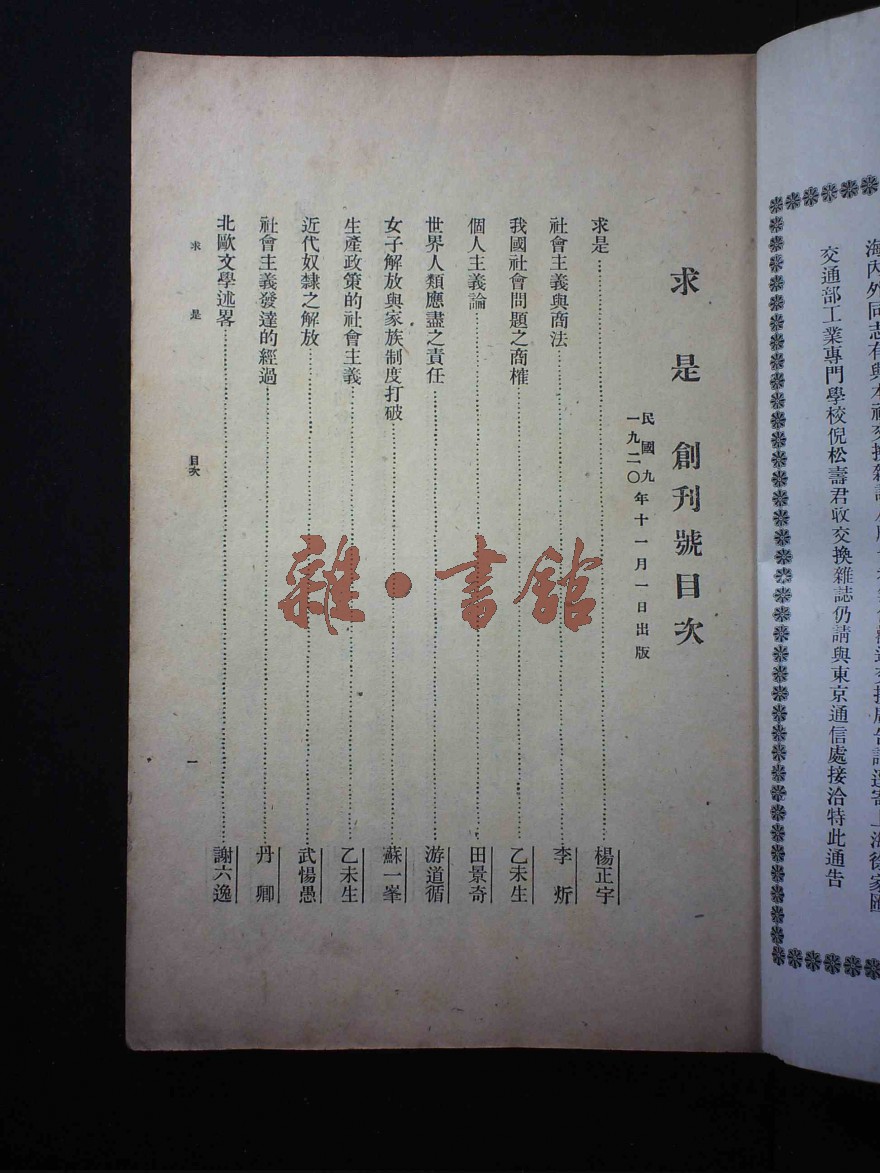 求是創刊號目次
民國九年十一月一日出版
一九二〇
求是 楊正宇
社會主義與商法 李炘
我國社會問題之商榷 乙未生
個人主義論 田景奇
世界人類應盡之責任 游道循
女子解放與家族制度打破 蘇一峯
生產政策的社會主義 乙未生
近代奴隸之解放 武愓愚
社會主義發達的經過 丹卿
北歐文學述畧 謝六逸
求是 目次 一
雜·書館
海內外同志有與本社交換
交通部工業專門學校倪松壽君收交換雜誌仍請與東京通信處接洽特此通告